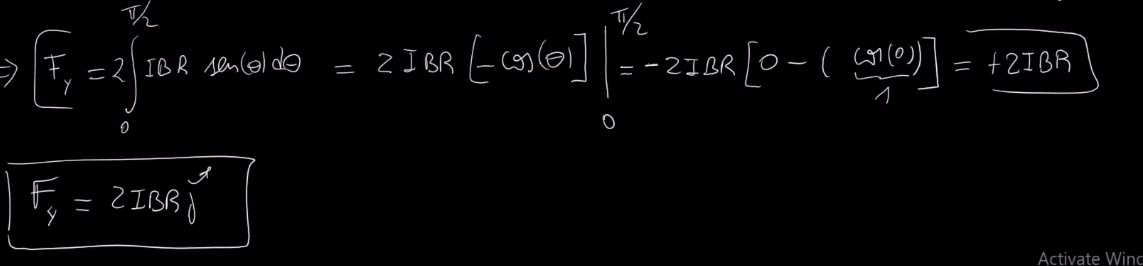 ⇒ [F_y = 2 ∫_0^{π/2} IBR sen(θ) dθ = 2IBR [-cos(θ)] |_0^{π/2} = -2IBR [0 - (cos(0))] = +2IBR
1
F_y = 2IBR ĵ
Activate Wind